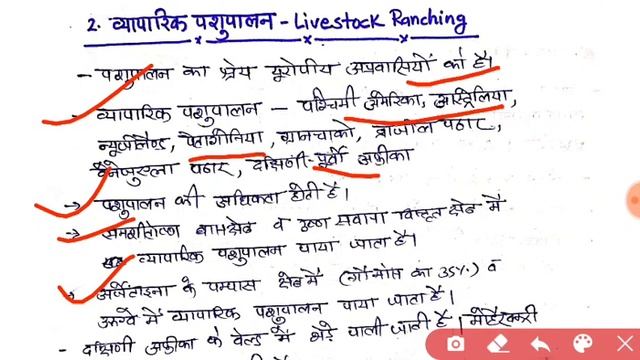 2. व्यापारिक पशुपालन - Livestock Ranching
- पशुपालन का श्रेय यूरोपीय अप्रवासियों को है।
- व्यापारिक पशुपालन - पश्चिमी अमेरिका, आस्ट्रेलिया,
न्यूजीलैण्ड, पेंटागोनिया, ग्रानचाको, ब्राजील पठार,
वेनेजुएला पठार, दक्षिणी-पूर्वी अफ्रीका
→ पशुपालन की अधिकता होती है।
→ समशीतोष्ण घासक्षेत्र व उष्ण सवाना विस्तृत क्षेत्र में
व्यापारिक पशुपालन पाया जाता है।
→ अर्जेंटाइना के पम्पास क्षेत्र में (गौमांस का 35%) व
उरुग्वे में व्यापारिक पशुपालन पाया जाता है।
- दक्षिणी अफ्रीका के वेल्ड में भेड़े पाली जाती है।